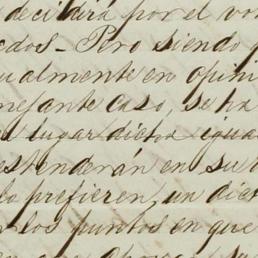 decidirá por el vo
edos - Pero siendo
ualmente en opini
nejante caso, se ha
lugar dicha igua
estenderán en su
lo prefieren, un dic
los puntos en que